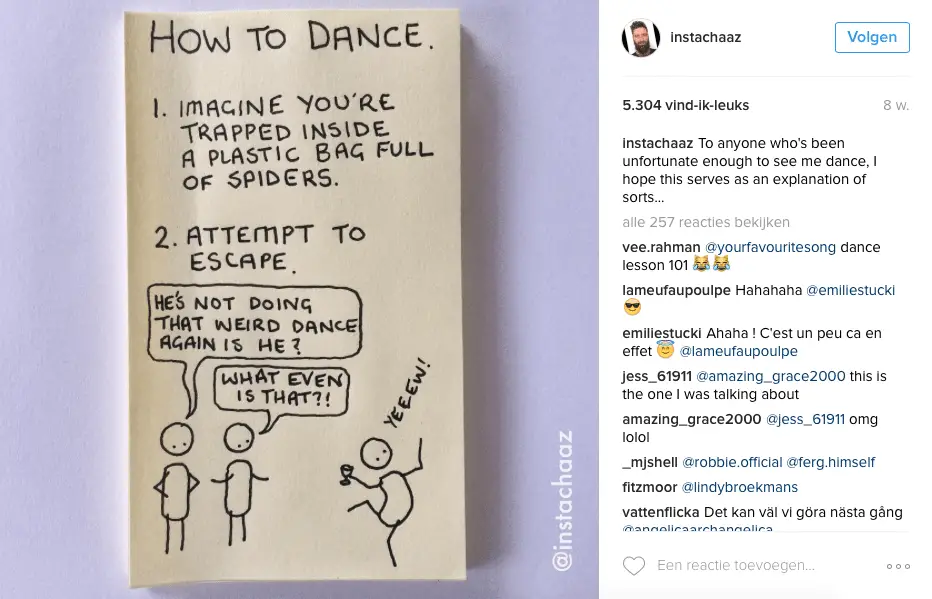 HOW TO DANCE.
1. IMAGINE YOU'RE
TRAPPED INSIDE
A PLASTIC BAG FULL
OF SPIDERS.
2. ATTEMPT TO
ESCAPE.
HE'S NOT DOING
THAT WEIRD DANCE
AGAIN IS HE?
WHAT EVEN
IS THAT?!
YEEEW!
@instachaaz
instachaaz
Volgen
5.304 vind-ik-leuks
8 w.
instachaaz To anyone who's been
unfortunate enough to see me dance, I
hope this serves as an explanation of
sorts...
alle 257 reacties bekijken
vee.rahman @yourfavouritesong dance
lesson 101 😹😹
lameufaupoulpe Hahahaha @emiliestucki
😎
emiliestucki Ahaha ! C'est un peu ca en
effet 😇 @lameufaupoulpe
jess_61911 @amazing_grace2000 this is
the one I was talking about
amazing_grace2000 @jess_61911 omg
lolol
_mjshell @robbie.official @ferg.himself
fitzmoor @lindybroekmans
vattenflicka Det kan väl vi göra nästa gång
@angelicaarchangelica
Een reactie toevoegen...